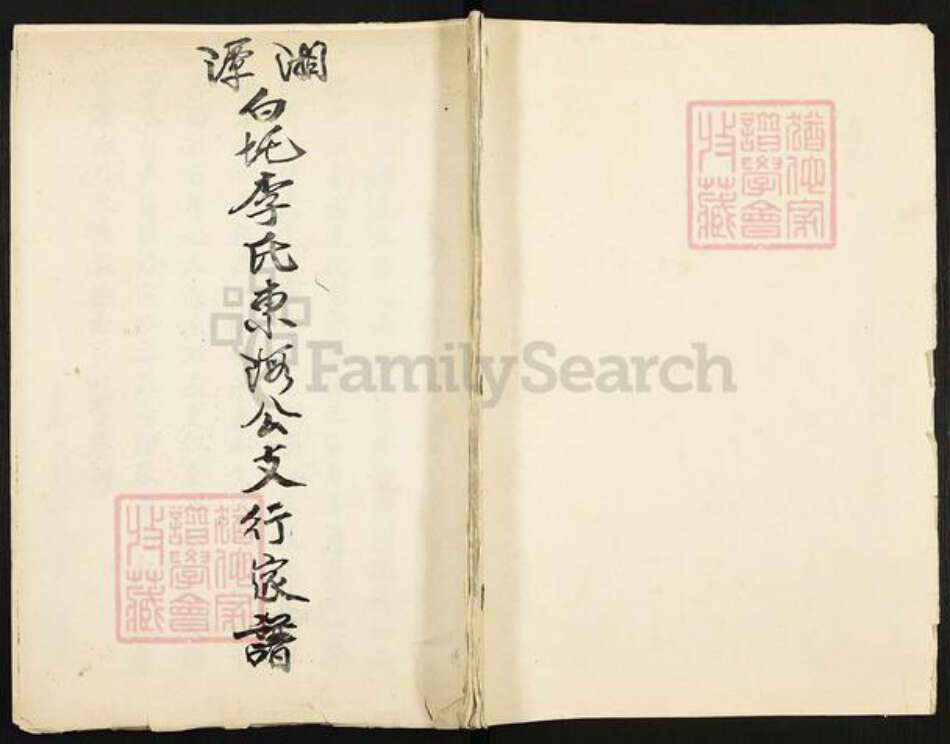 湘潭
白圫李氏東公支行家譜
猶他家
譜學會
收藏
猶他家
譜學會
收藏
FamilySearch